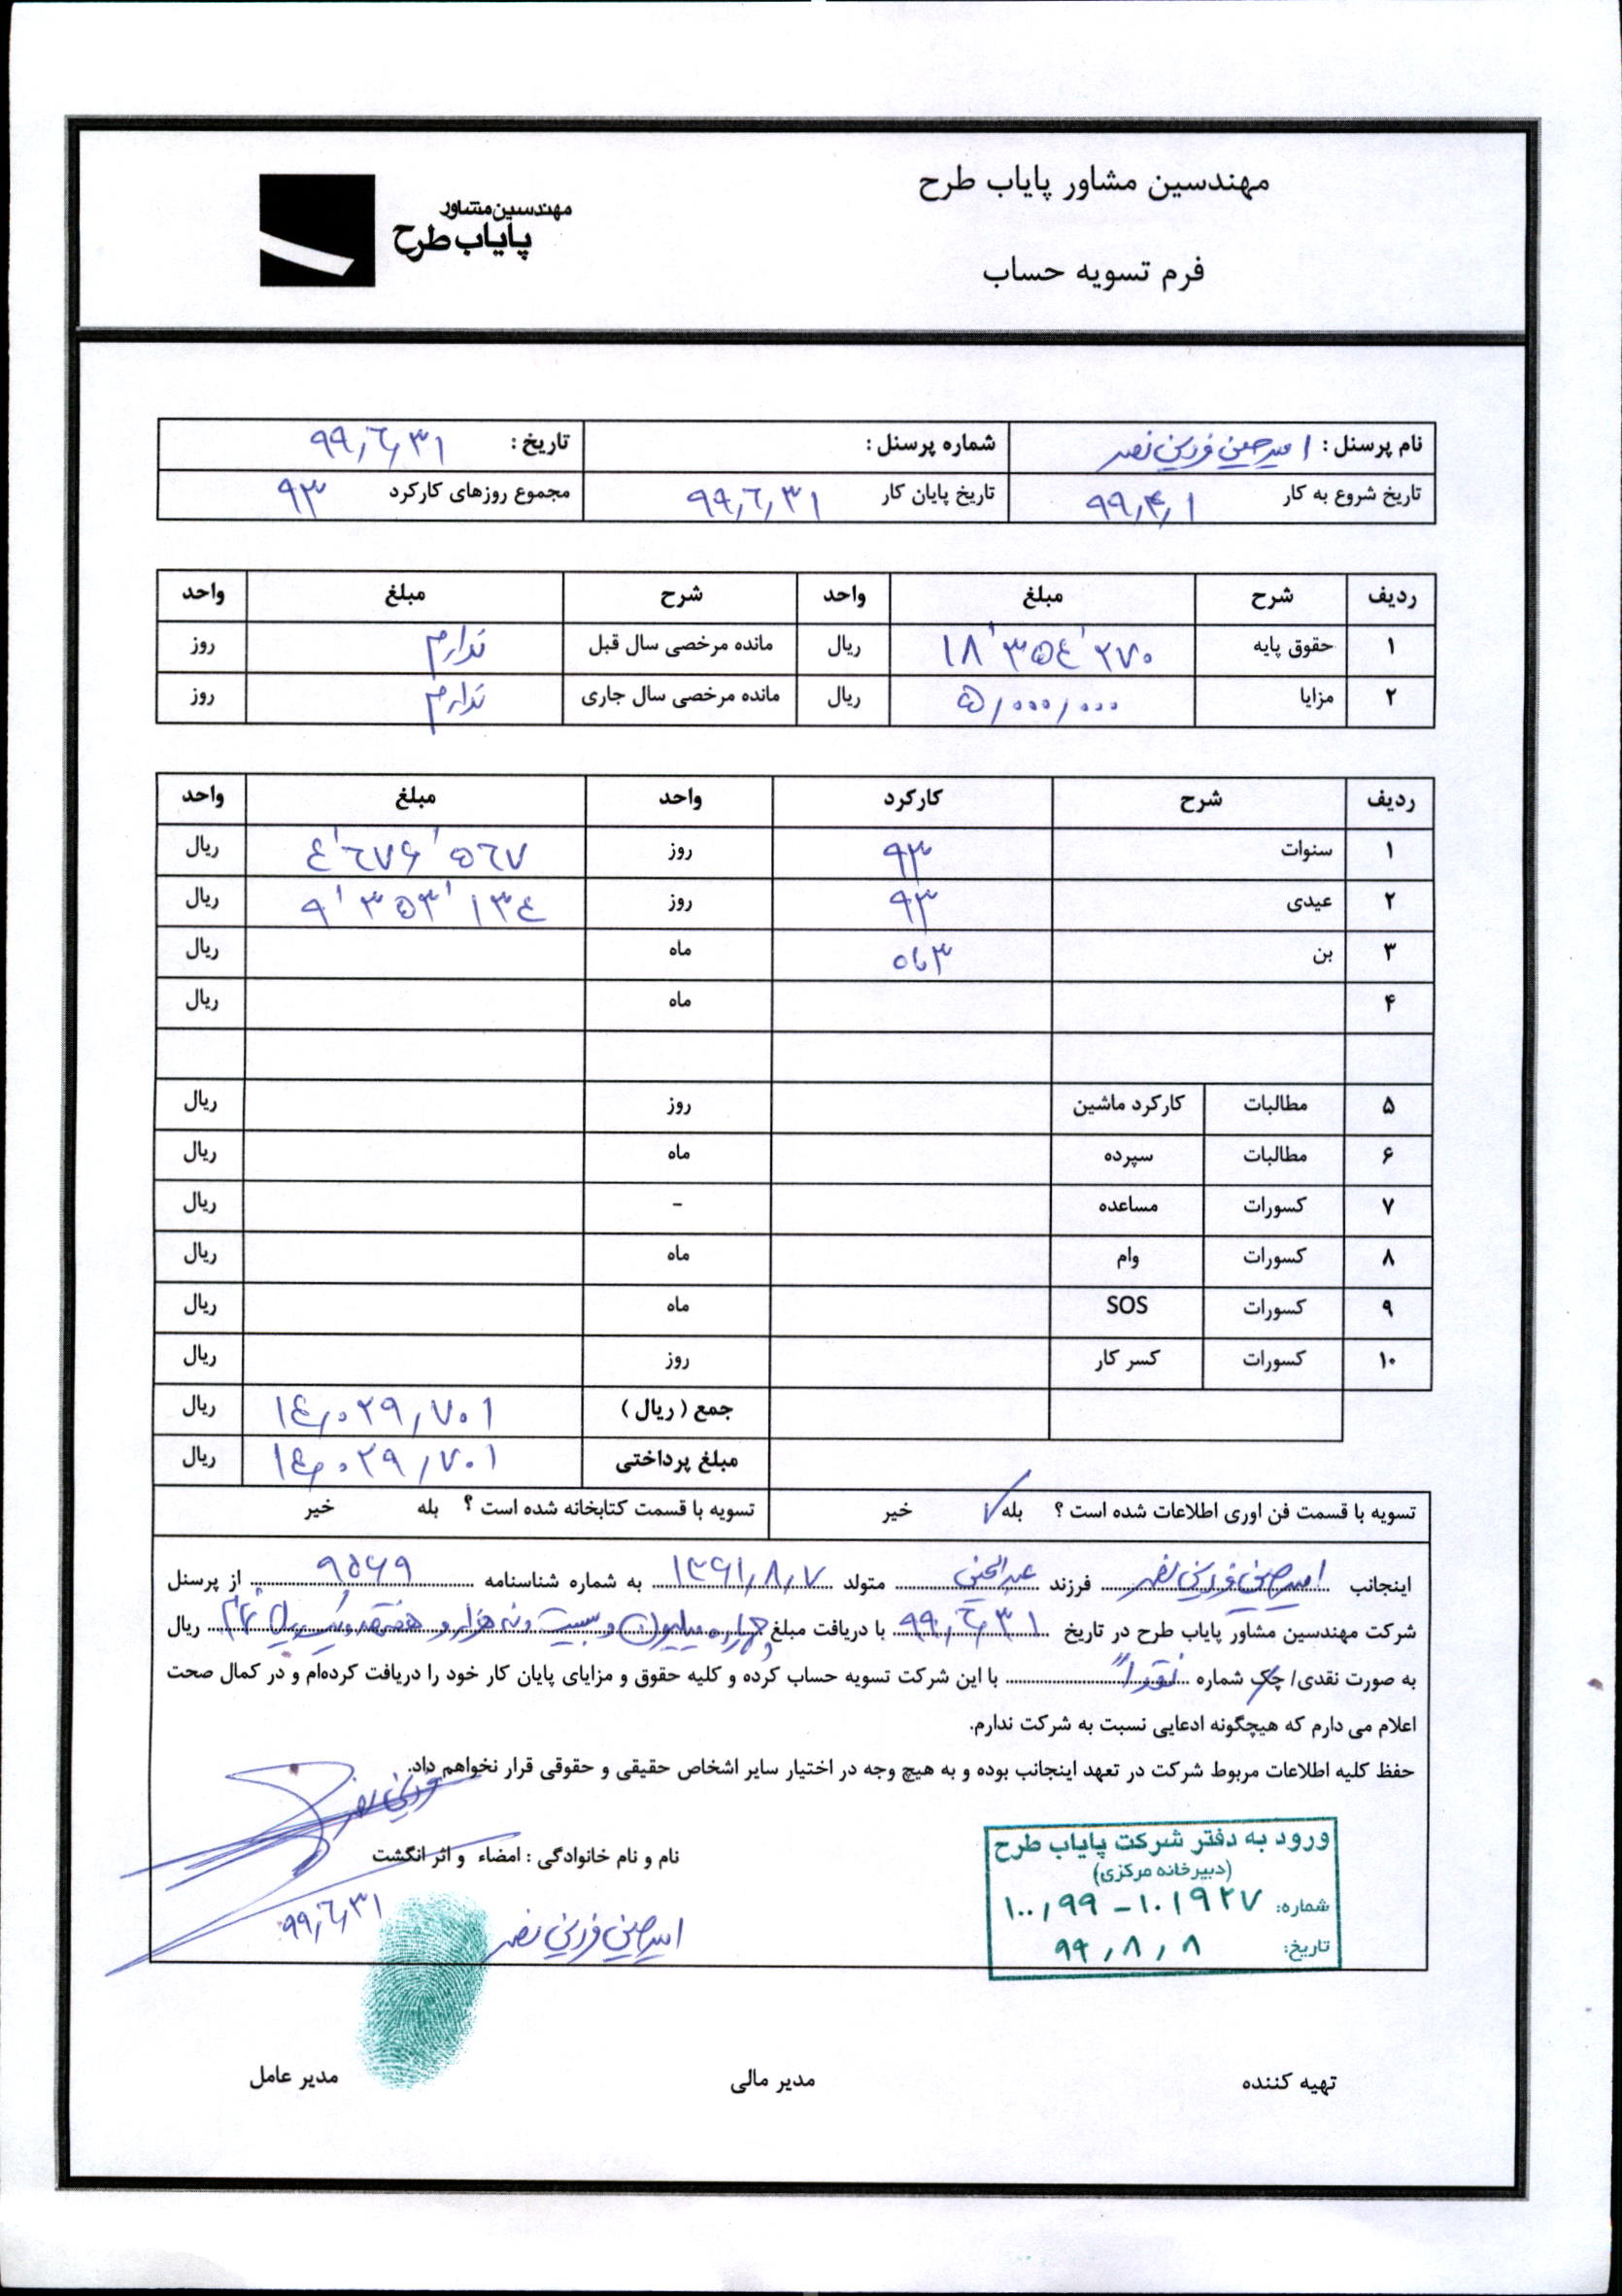 مهندسین مشاور پایاب طرح
مهندسین مشاور
پایاب طرح
فرم تسویه حساب
نام پرسنل : امیرحسین فرزین نصر شماره پرسنل : تاریخ : ۹۹٫۶٫۳۱
تاریخ شروع به کار ۹۹٫۴٫۱ تاریخ پایان کار ۹۹٫۶٫۳۱ مجموع روزهای کارکرد ۹۳
ردیف شرح مبلغ واحد شرح مبلغ واحد
۱ حقوق پایه ۱۸٬۳۵۴٬۲۷۰ ریال مانده مرخصی سال قبل ندارم روز
۲ مزایا ۵٬۰۰۰٬۰۰۰ ریال مانده مرخصی سال جاری ندارم روز
ردیف شرح کارکرد واحد مبلغ واحد
۱ سنوات ۹۳ روز ۴٬۶۷۶٬۵۶۷ ریال
۲ عیدی ۹۳ روز ۹٬۳۵۳٬۱۳۴ ریال
۳ بن ۳ماه ماه ریال
۴ ماه ریال
۵ مطالبات کارکرد ماشین روز ریال
۶ مطالبات سپرده ماه ریال
۷ کسورات مساعده - ریال
۸ کسورات وام ماه ریال
۹ کسورات SOS ماه ریال
۱۰ کسورات کسر کار روز ریال
جمع ( ریال ) ۱۴٫۰۲۹٫۷۰۱ ریال
مبلغ پرداختی ۱۴٫۰۲۹٫۷۰۱ ریال
تسویه با قسمت فن اوری اطلاعات شده است ؟ بله ✓ خیر تسویه با قسمت کتابخانه شده است ؟ بله خیر
اینجانب امیرحسین فرزین نصر فرزند متولد ۱۳۶۱٫۸٫۷ به شماره شناسنامه ۹۵۶۹ از پرسنل
شرکت مهندسین مشاور پایاب طرح در تاریخ ۹۹٫۶٫۳۱ با دریافت مبلغ چهارده میلیون و بیست و نه هزار و هفتصد و یک ریال تمام ریال
به صورت نقدی/ چک شماره نقداً با این شرکت تسویه حساب کرده و کلیه حقوق و مزایای پایان کار خود را دریافت کرده‌ام و در کمال صحت
اعلام می دارم که هیچگونه ادعایی نسبت به شرکت ندارم.
حفظ کلیه اطلاعات مربوط شرکت در تعهد اینجانب بوده و به هیچ وجه در اختیار سایر اشخاص حقیقی و حقوقی قرار نخواهم داد.
فرزین نصر
نام و نام خانوادگی : امضاء و اثر انگشت
امیرحسین فرزین نصر
۹۹٫۶٫۳۱
ورود به دفتر شرکت پایاب طرح
(دبیرخانه مرکزی)
شماره: ۱۰۰٫۹۹-۱۰۱۹۲۷
تاریخ: ۹۹٫۸٫۸
تهیه کننده مدیر مالی مدیر عامل